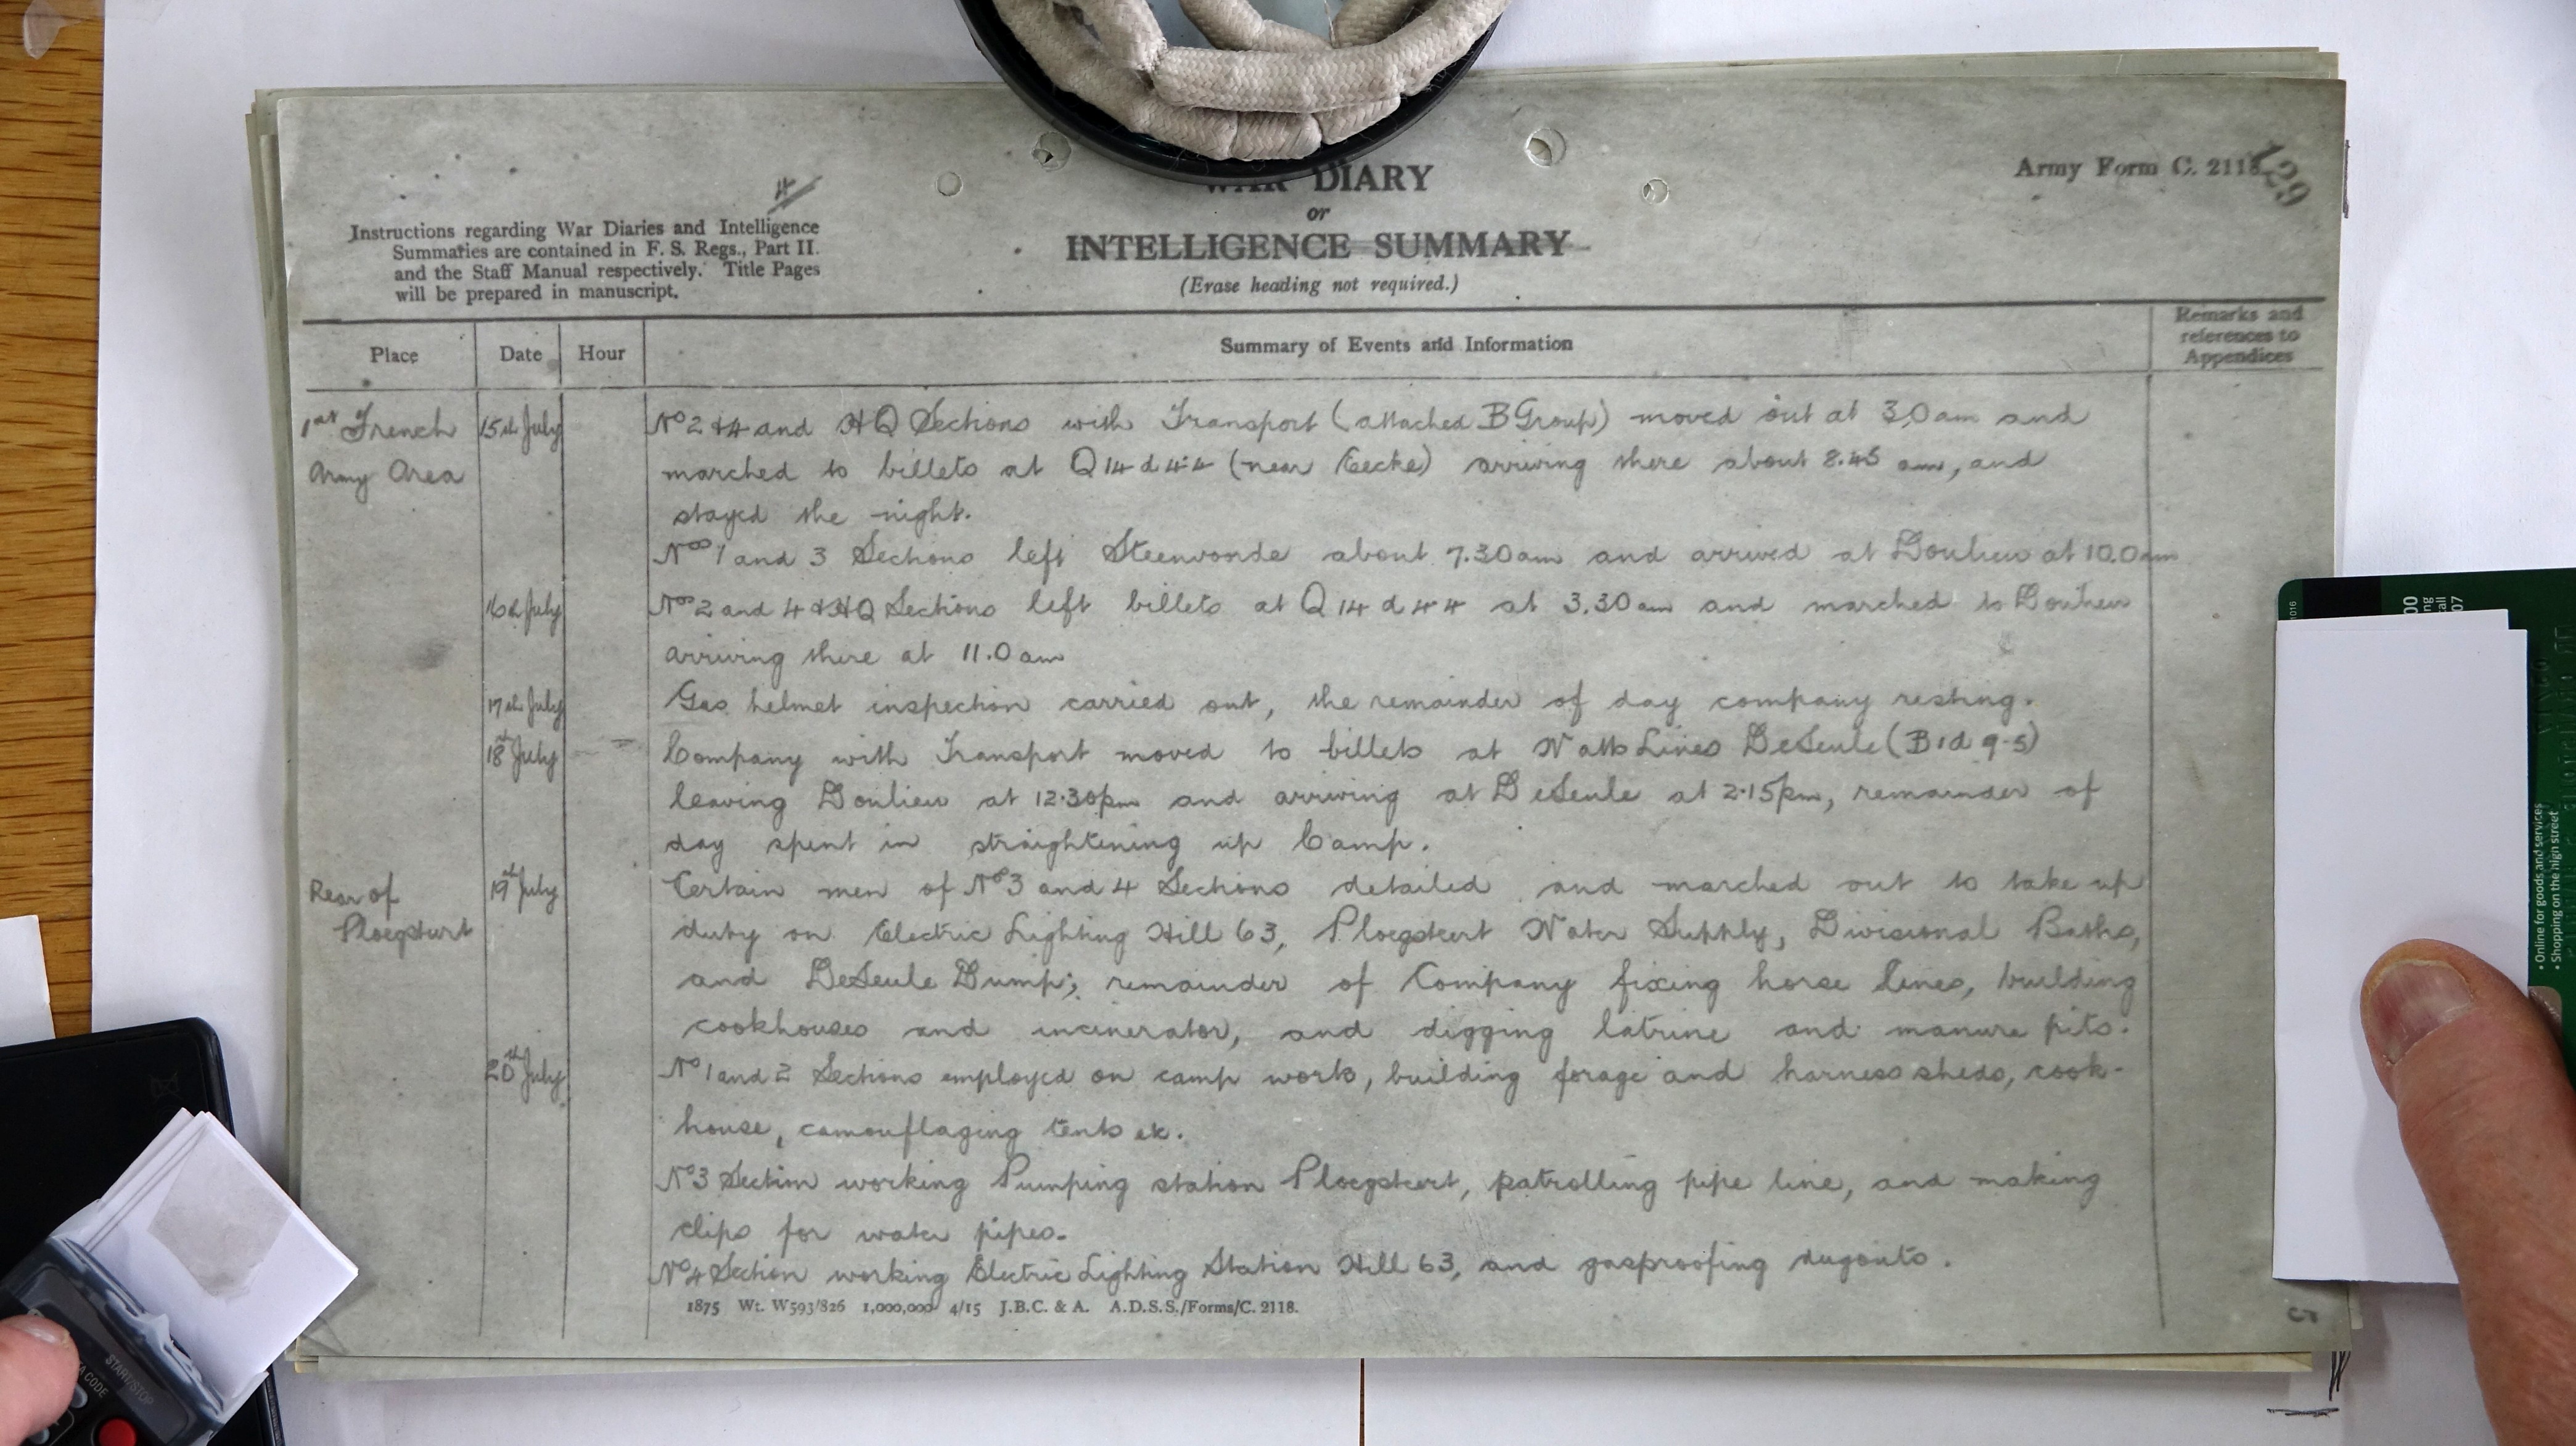 WAR DIARY
or
INTELLIGENCE SUMMARY
(Erase heading not required.)
Army Form C. 2118
129
4
Instructions regarding War Diaries and Intelligence
Summaries are contained in F. S. Regs., Part II.
and the Staff Manual respectively. Title Pages
will be prepared in manuscript.
Place Date Hour Summary of Events and Information Remarks and
references to
Appendices
1st French 15th July No 2 & 4 and HQ Sections with Transport (attached B Group) moved out at 3.0 am and
Army Area marched to billets at Q 14 d 4.4 (near Eecke) arriving there about 8.45 am, and
stayed the night.
Nos 1 and 3 Sections left Steenvoorde about 7.30 am and arrived at Doulieu at 10.0 am
16th July Nos 2 and 4 & HQ Sections left billets at Q 14 d 4.4 at 3.30 am and marched to Doulieu
arriving there at 11.0 am
17th July Gas helmet inspection carried out, the remainder of day company resting.
18th July Company with Transport moved to billets at Lines DeSeule (B 1 d 9.5)
leaving Doulieu at 12.30pm and arriving at DeSeule at 2.15pm, remainder of
day spent in straightening up Camp.
Rear of 19th July Certain men of Nos 3 and 4 Sections detailed and marched out to take up
Ploegsturt duty on Electric Lighting Hill 63, Ploegstert Water Supply, Divisional Baths,
and DeSeule Dump; remainder of Company fixing horse lines, building
cookhouses and incinerator, and digging latrine and manure pits.
20th July No 1 and 2 Sections employed on camp work, building forage and harness sheds, cook-
house, camouflaging tents etc.
No 3 Section working Pumping station Ploegstert, patrolling pipe line, and making
clips for water pipes.
No 4 Section working Electric Lighting Station Hill 63, and gasproofing dugouts.
1875 Wt. W593/826 1,000,000 4/15 J.B.C. & A. A.D.S.S./Forms/C. 2118.
5
• Online for goods and services
• Shopping on the high street
START/STOP